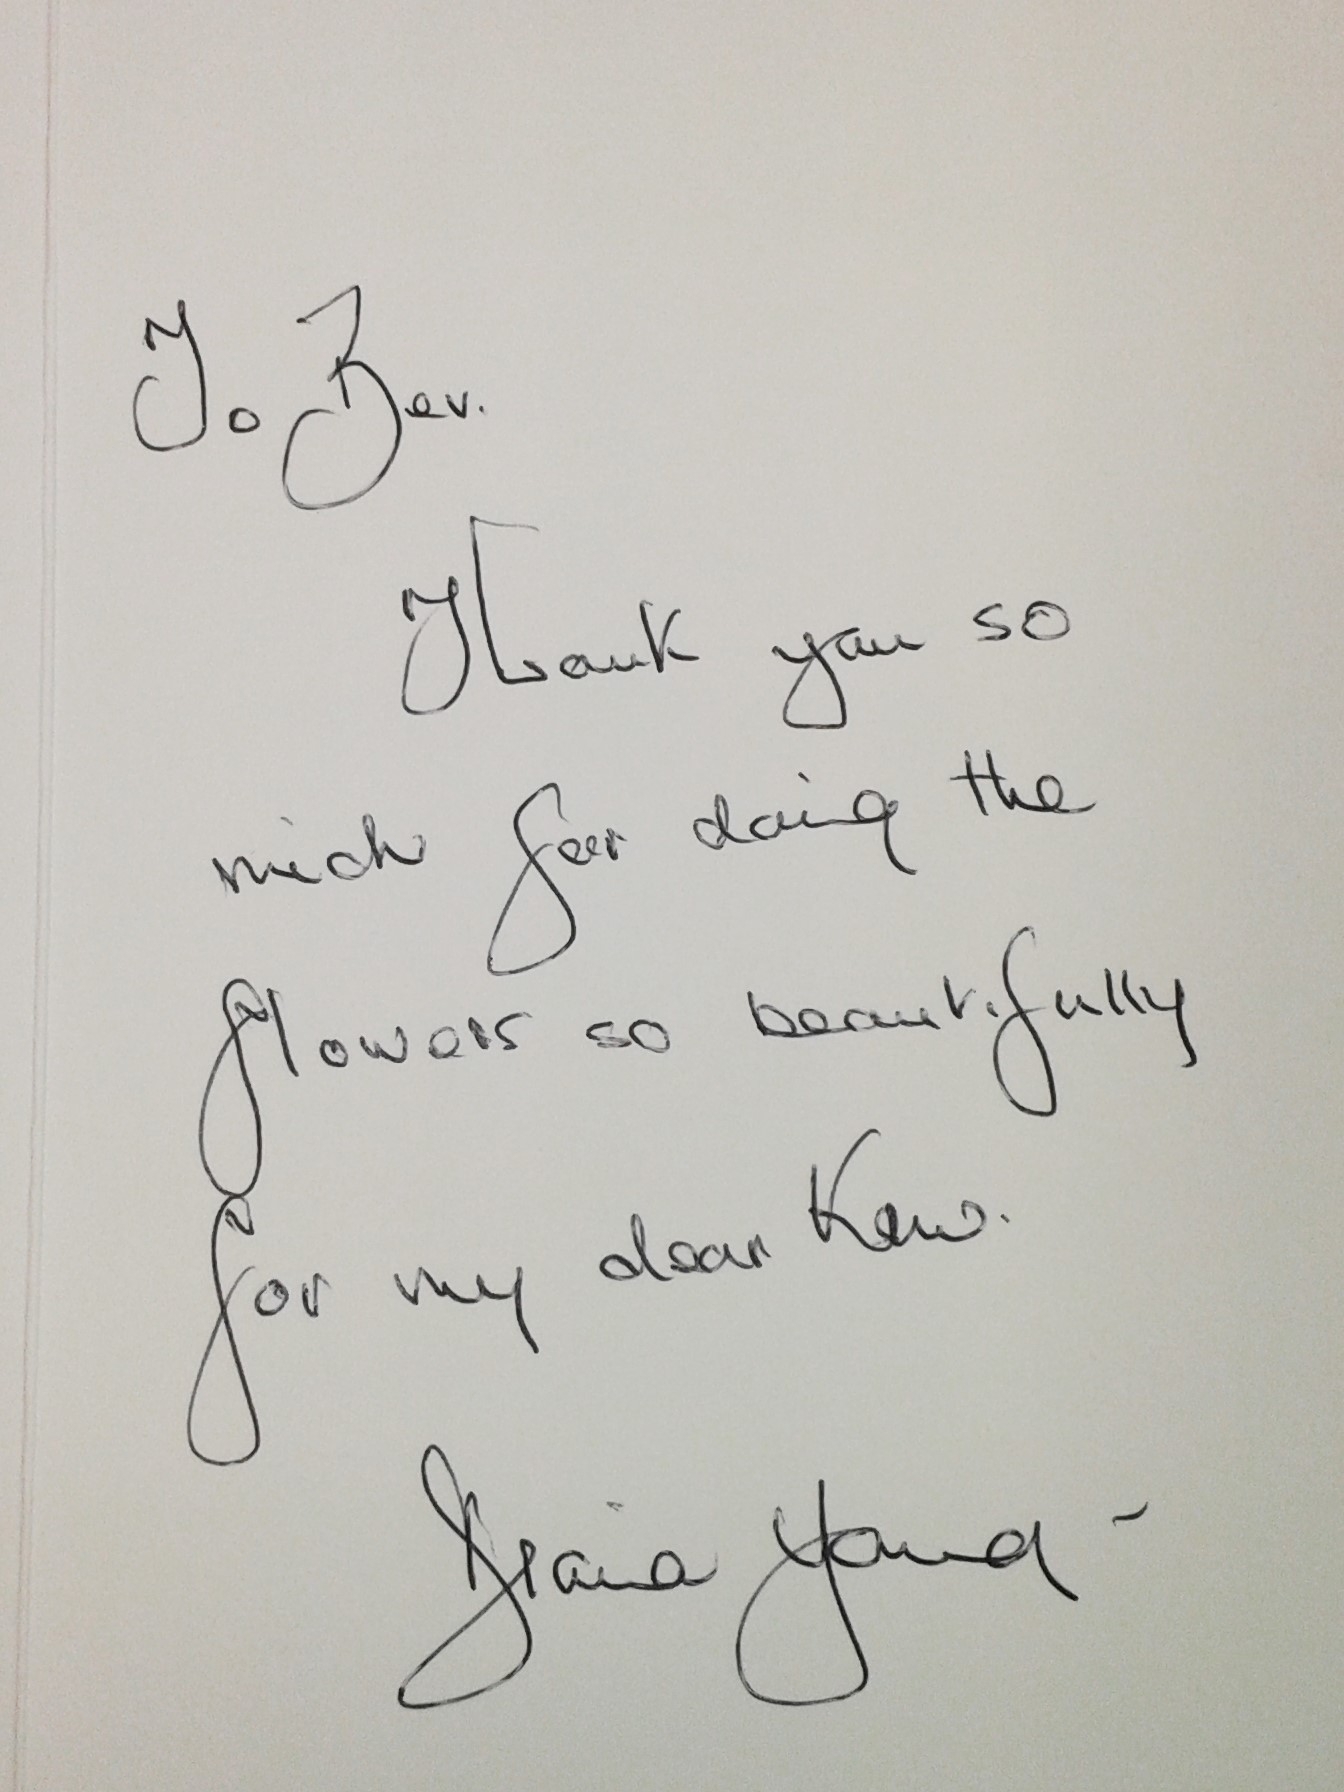 To Bev.
Thank you so
much for doing the
flowers so beautifully
for my dear Ken.
Young